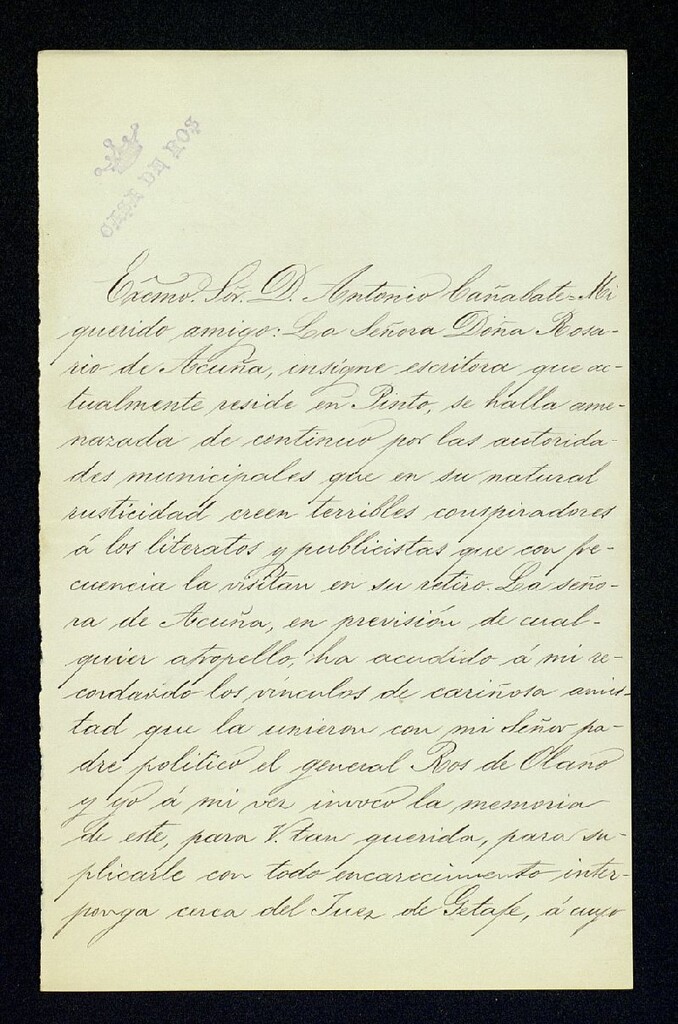 CASA DE ROS
Exmo. Sor. D. Antonio Cañabate=Mi
querido amigo: La Señora Doña Rosa-
rio de Acuña, insigne escritora que ac-
tualmente reside en Pinto, se halla ame-
nazada de continuo por las autorida-
des municipales que en su natural
rusticidad creen terribles conspiradores
á los literatos y publicistas que con fre-
cuencia la visitan en su retiro. La seño-
ra de Acuña, en previsión de cual-
quier atropello, ha acudido á mi re-
cordando los vínculos de cariñosa amis-
tad que la unieron con mi Señor pa-
dre político el general Ros de Olano
y yo á mi vez invoco la memoria
de este, para V. tan querida, para su-
plicarle con todo encarecimiento inter-
ponga cerca del Juez de Getafe, á cuyo